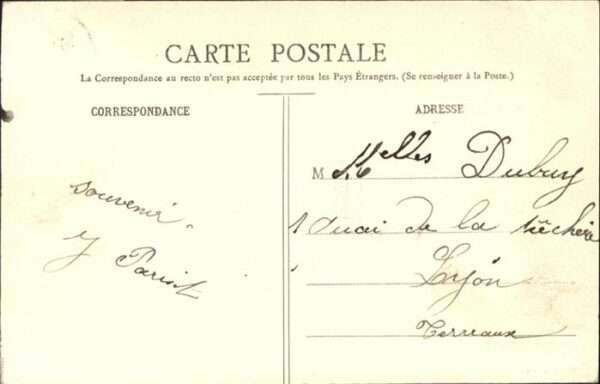 CARTE POSTALE
La Correspondance au recto n'est pas acceptée par tous les Pays Étrangers. (Se renseigner à la Poste.)
CORRESPONDANCE
souvenir
ADRESSE
M Melles Dubuy
1 Quai de la Pêcherie
Lyon
Terreaux